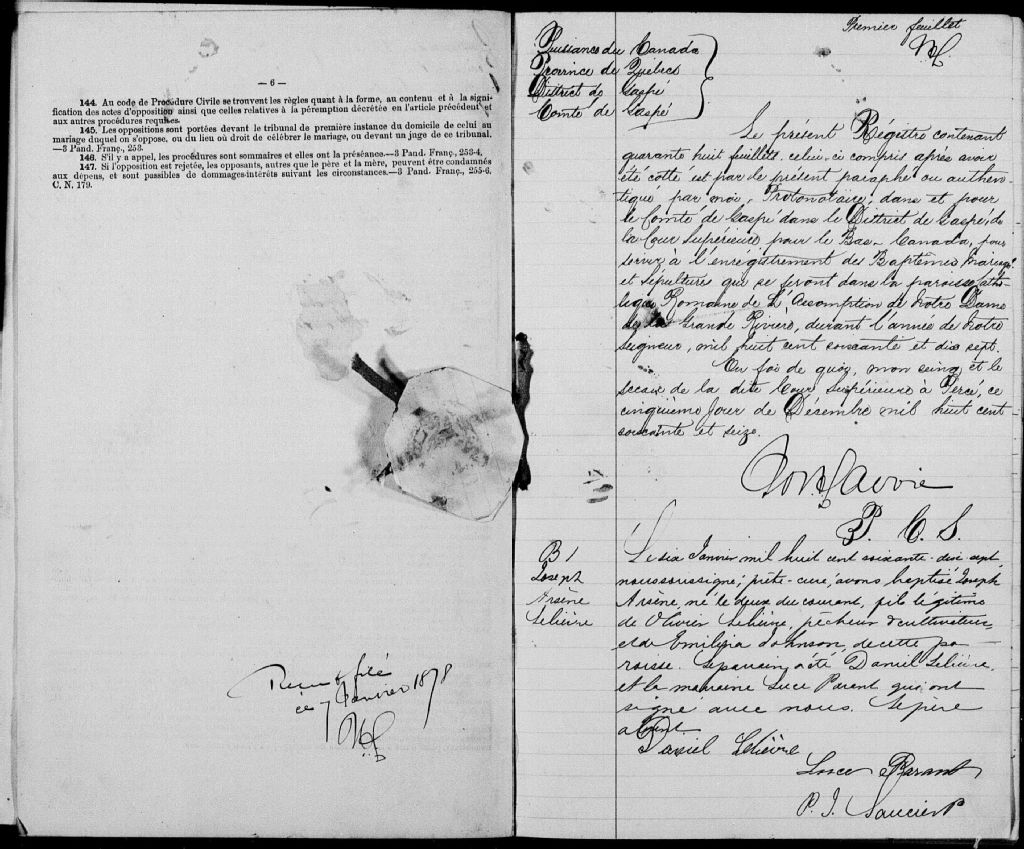 — 6 —
144. Au code de Procédure Civile se trouvent les règles quant à la forme, au contenu et à la signi-
fication des actes d'opposition ainsi que celles relatives à la péremption décrétée en l'article précédent et
aux autres procédures requises.
145. Les oppositions sont portées devant le tribunal de première instance du domicile de celui au
mariage duquel on s'oppose, ou du lieu où droit de célébrer le mariage, ou devant un juge de ce tribunal.
—3 Pand. Franç., 253.
146. S'il y a appel, les procédures sont sommaires et elles ont la préséance.—3 Pand. Franç., 253-4.
147. Si l'opposition est rejetée, les opposants, autres que le père et la mère, peuvent être condamnés
aux dépens, et sont passibles de dommages-intérêts suivant les circonstances.—3 Pand. Franç., 255-6.
C. N. 179.
Reçu & filé
ce 7 Janvier 1878
Premier feuillet
Puissance du Canada
Province de Québec
District de Gaspé
Comté de Gaspé
Le présent Régistre contenant
quarante huit feuillets celui-ci compris après avoir
été cotté est par le présent paraphé ou authen-
tiqué par moi, Protonotaire, dans et pour
le Comté de Gaspé dans le District de Gaspé, de
la Cour Supérieure pour le Bas-Canada, pour
servir à l'enrégistrement des Baptêmes Mariages
et Sépultures qui se feront dans la paroisse Catho-
lique Romaine de L'Assomption de Notre Dame
de la Grande Rivière, durant l'année de Notre
Seigneur, mil huit cent soixante et dix sept.
En foi de quoi, mon seing et le
sceau de la dite Cour Supérieure à Percé, ce
cinquième jour de Décembre mil huit cent
soixante et seize.
P. C. S.
B 1
Joseph
Arsène
Lelièvre
Le six Janvier mil huit cent soixante-dix sept
nous soussigné, prêtre-curé, avons baptisé Joseph
Arsène, né le deux du courant, fils légitime
de Olivier Lelièvre, pêcheur & cultivateur,
et de Emilina Johnson, de cette pa-
roisse. Le parrain a été Daniel Lelièvre,
et la marraine Luce Parent qui ont
signé avec nous. Le père
absent.
Daniel Lelièvre
Luce Parant
P. J. Saucier P